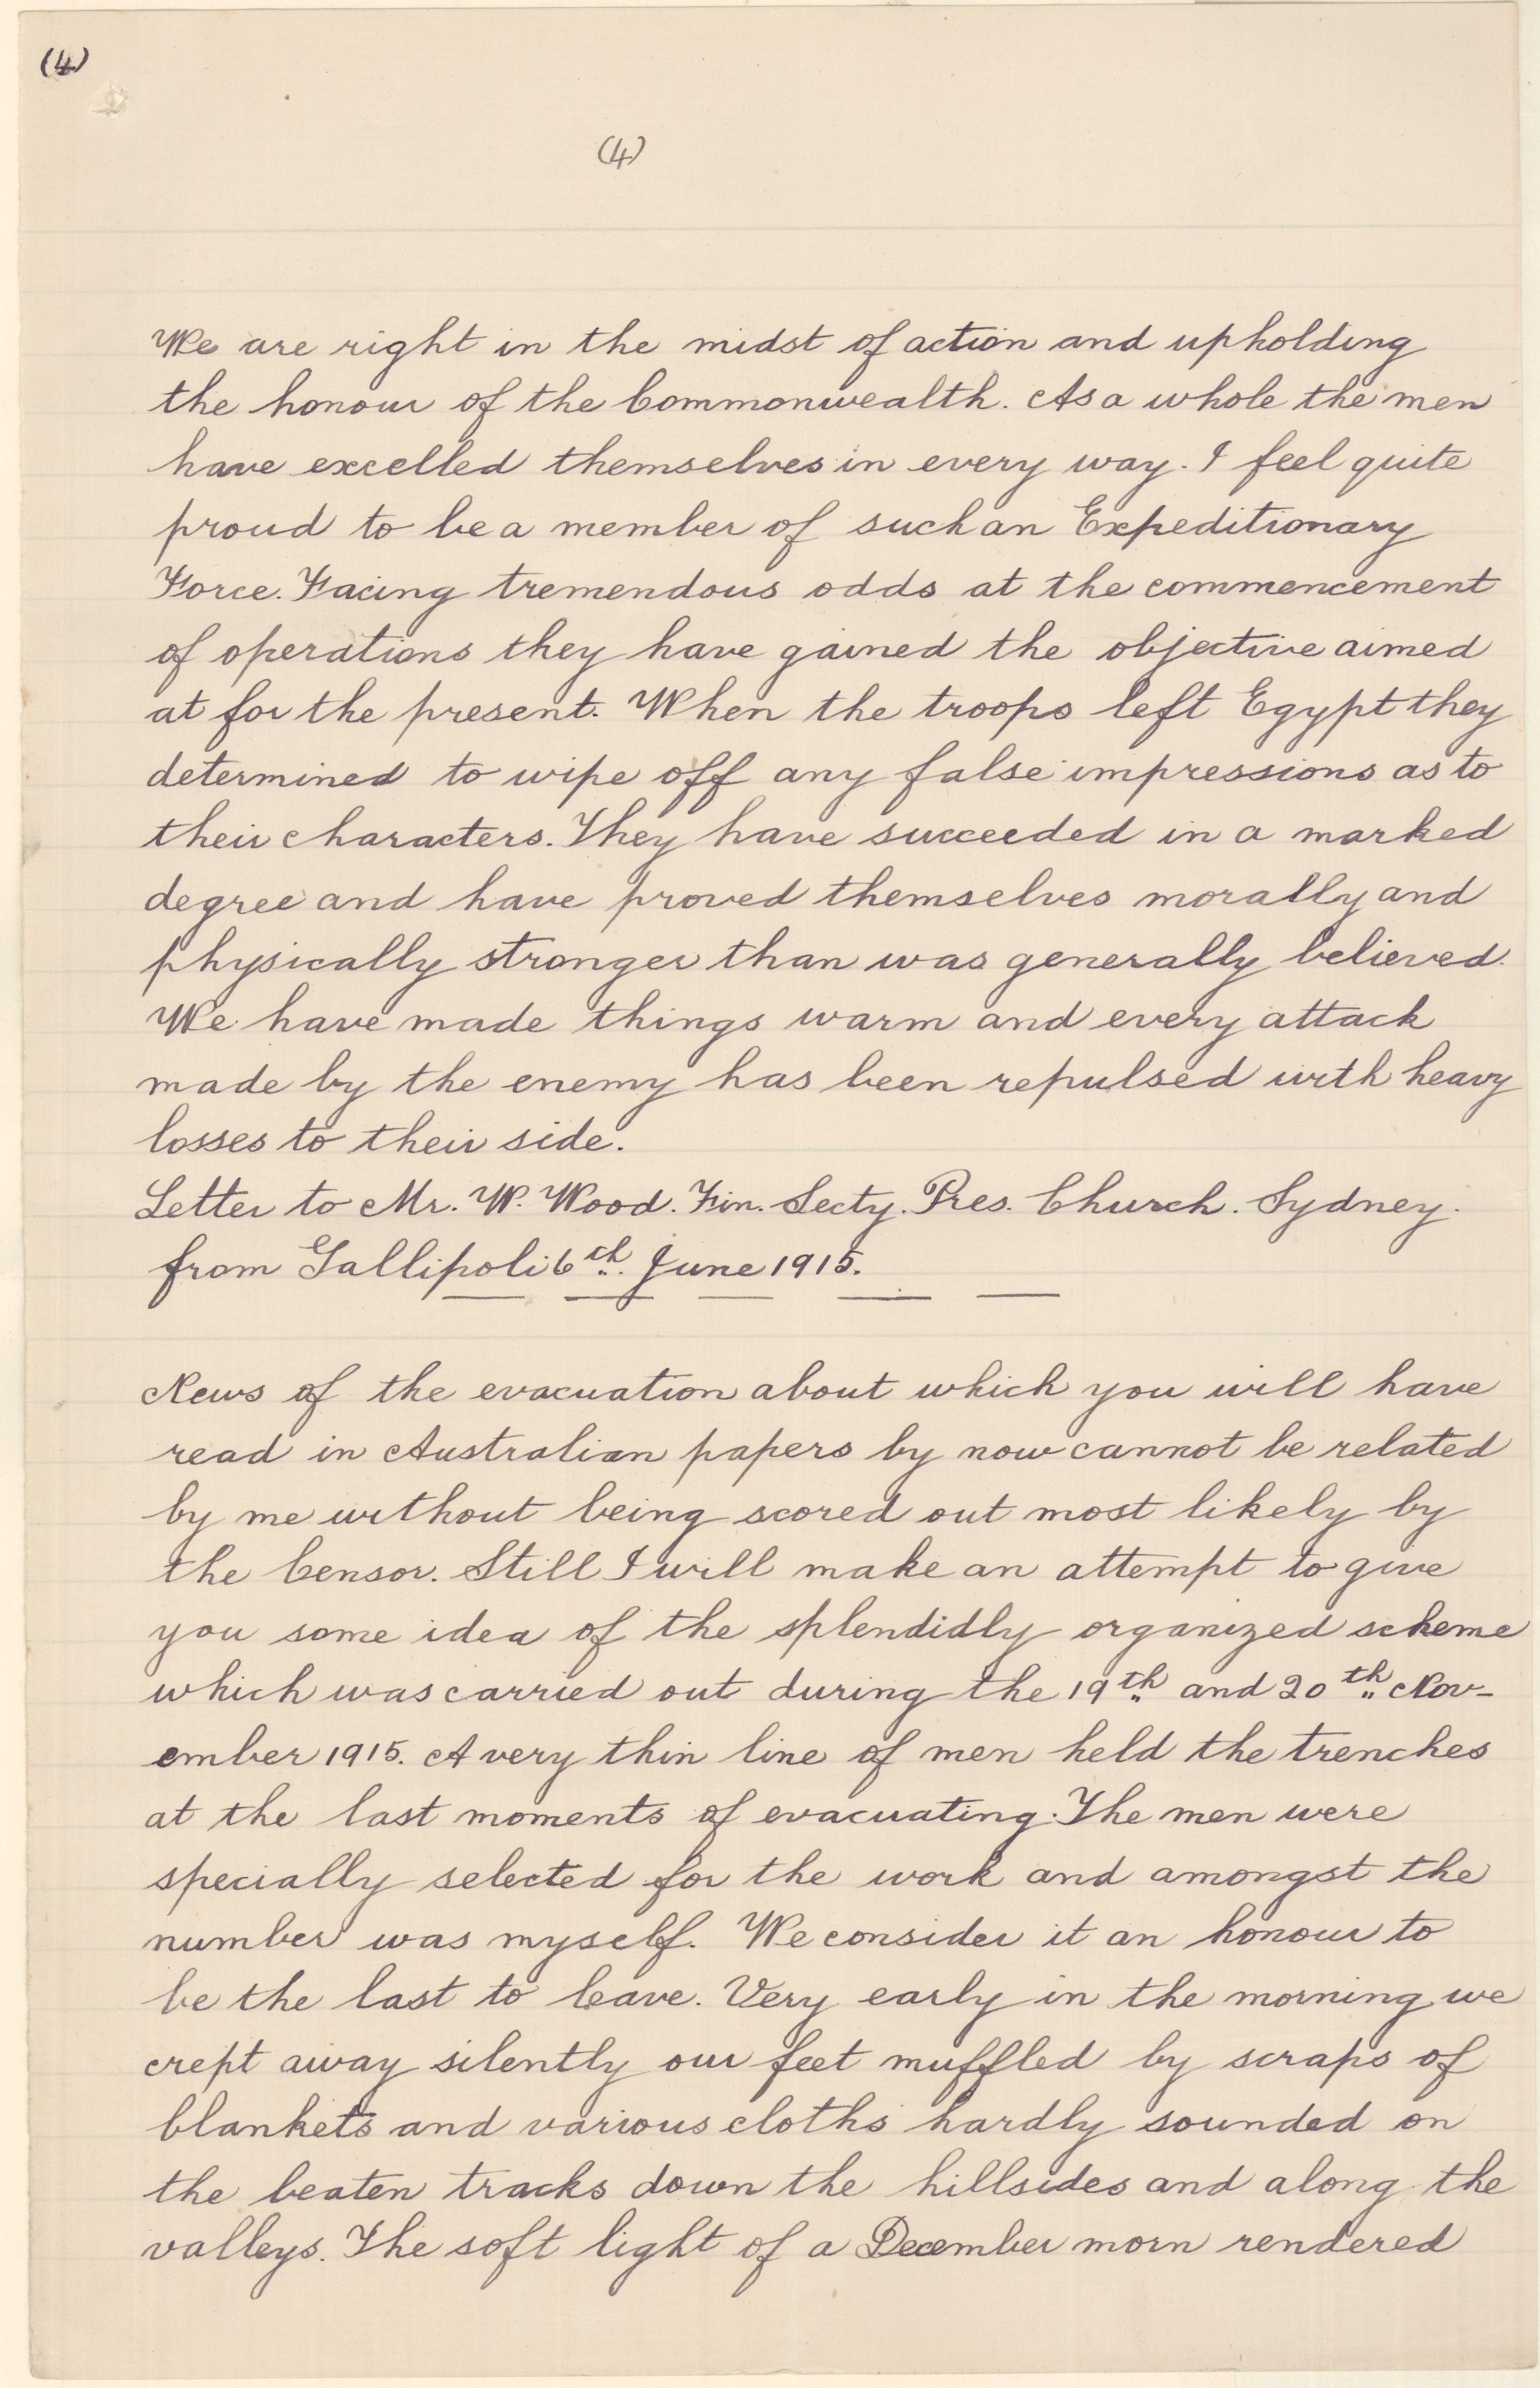 (4)
(4)
We are right in the midst of action and upholding
the honour of the Commonwealth. As a whole the men
have excelled themselves in every way. I feel quite
proud to be a member of such an Expeditionary
Force. Facing tremendous odds at the commencement
of operations they have gained the objective aimed
at for the present. When the troops left Egypt they
determined to wipe off any false impressions as to
their characters. They have succeeded in a marked
degree and have proved themselves morally and
physically stronger than was generally believed.
We have made things warm and every attack
made by the enemy has been repulsed with heavy
losses to their side.
Letter to Mr. W. Wood. Fin. Secty. Pres. Church. Sydney.
from Gallipoli 6th June 1915.
News of the evacuation about which you will have
read in Australian papers by now cannot be related
by me without being scored out most likely by
the Censor. Still I will make an attempt to give
you some idea of the splendidly organized scheme
which was carried out during the 19th and 20th Nov-
ember 1915. A very thin line of men held the trenches
at the last moments of evacuating. The men were
specially selected for the work and amongst the
number was myself. We consider it an honour to
be the last to leave. Very early in the morning we
crept away silently our feet muffled by scraps of
blankets and various cloths hardly sounded on
the beaten tracks down the hillsides and along the
valleys. The soft light of a December morn rendered